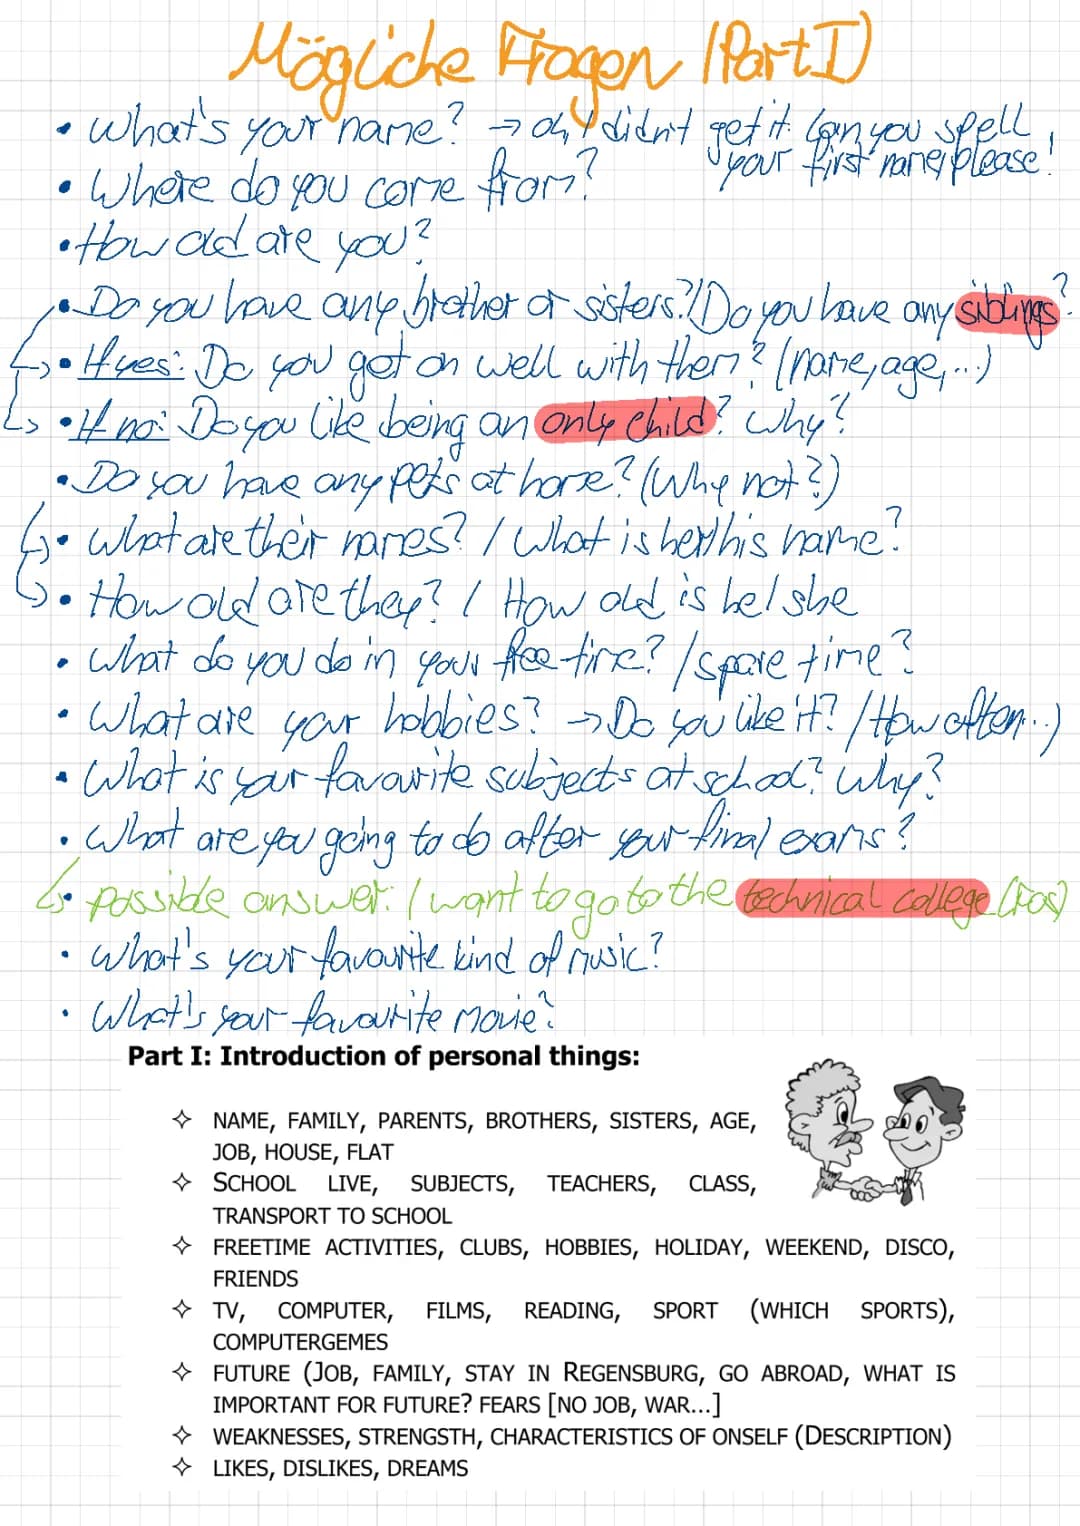 Mögliche Fragen (Part I)
• What's your name? → oh, I didn't get it. Can you spell
your first name, please!
• Where do you come from?
• How old are you?
• Do you have any brother or sisters?/Do you have any siblings?
• If yes: Do you get on well with them? (name, age, ...)
• If no: Do you like being an only child? Why?
• Do you have any pets at home? (Why not?)
• What are their names? / What is her/his name?
• How old are they? / How old is he/she
• What do you do in your free time? /spare time?
• What are your hobbies? → Do you like it? /How often...)
• What is your favourite subjects at school? Why?
• What are you going to do after your final exams?
• possible answer: I want to go to the technical college (Fos)
• What's your favourite kind of music?
• What's your favourite movie?
Part I: Introduction of personal things:
✧ NAME, FAMILY, PARENTS, BROTHERS, SISTERS, AGE,
JOB, HOUSE, FLAT
✧ SCHOOL LIVE, SUBJECTS, TEACHERS, CLASS,
TRANSPORT TO SCHOOL
✧ FREETIME ACTIVITIES, CLUBS, HOBBIES, HOLIDAY, WEEKEND, DISCO,
FRIENDS
✧ TV, COMPUTER, FILMS, READING, SPORT (WHICH SPORTS),
COMPUTERGEMES
✧ FUTURE (JOB, FAMILY, STAY IN REGENSBURG, GO ABROAD, WHAT IS
IMPORTANT FOR FUTURE? FEARS [NO JOB, WAR...]
✧ WEAKNESSES, STRENGSTH, CHARACTERISTICS OF ONSELF (DESCRIPTION)
✧ LIKES, DISLIKES, DREAMS